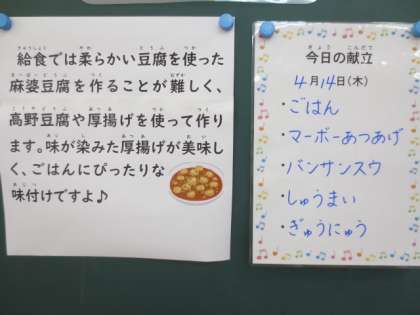 給食では柔らかい豆腐を使った
麻婆豆腐を作ることが難しく、
高野豆腐や厚揚げを使って作り
ます。味が染みた厚揚げが美味し
く、ごはんにぴったりな
味付けですよ♪
今日の献立
4月14日(木)
・ごはん
・マーボーあつあげ
・バンサンスウ
・しゅうまい
・ぎゅうにゅう